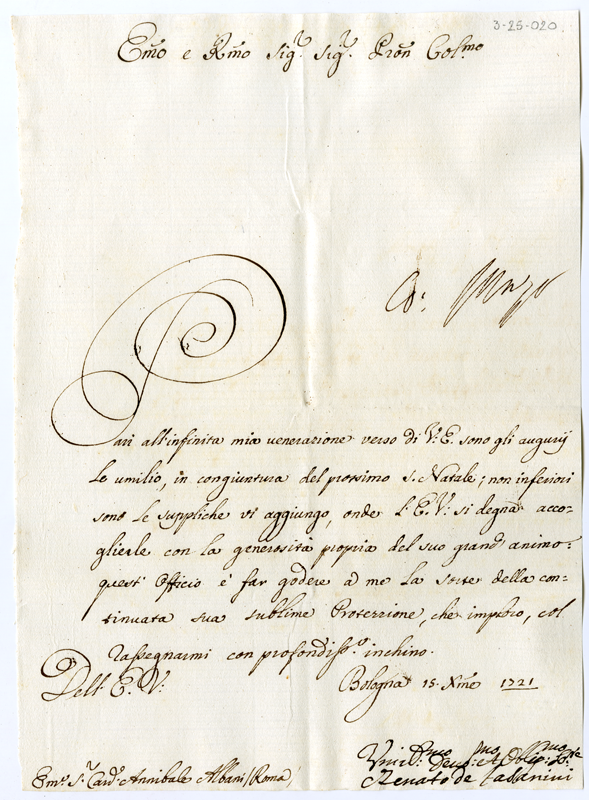 3-25-020
Em̃o e Rm̃o Sig.r Sig.r Pron̄ Col.mo
Pari all'infinita mia venerazione verso di V. E. sono gli augurij
Le umilio, in congiuntura del prossimo S. Natale; non inferiori
sono le suppliche vi aggiungo, onde l'E. V: si degna acco-
glierle con la generosità propria del suo grand'animo:
quest'Officio è far godere à me la sorte della con-
tinuata sua sublime Protezzione, che imploro, col
rassegnarmi con profondiss.o inchino.
Dell'E. V:
Bologna 15. Xm̃e 1721
Em.o S.r Card. Annibale Albani (Roma)
Renato de